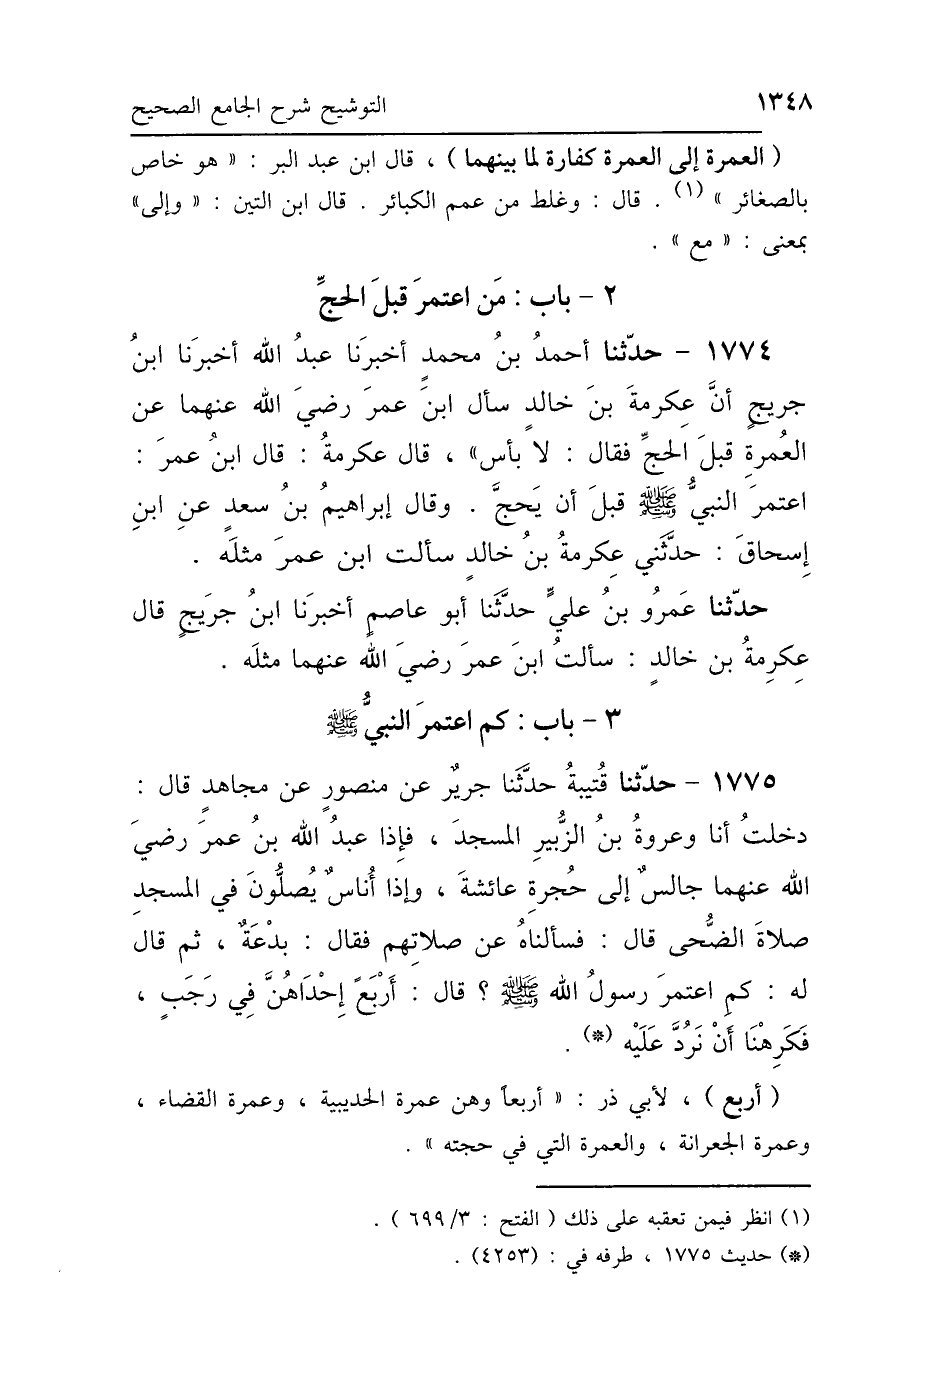 ١٣٤٨ التوشيح شرح الجامع الصحيح
( العمرة إلى العمرة كفارة لما بينهما ) ، قال ابن عبد البر : « هو خاص
بالصغائر » (١) . قال : وغلط من عمم الكبائر . قال ابن التين : « وإلى»
بمعنى : « مع » .
٢ - باب : مَن اعتمرَ قبلَ الحجِّ
١٧٧٤ - حدّثنا أحمدُ بنُ محمدٍ أخبرَنا عبدُ الله أخبرَنا ابنُ
جريجٍ أنَّ عِكرمةَ بنَ خالدٍ سأل ابنَ عمرَ رضيَ الله عنهما عن
العُمرةِ قبلَ الحجِّ فقال : لا بأس» ، قال عكرمةُ : قال ابنُ عمرَ :
اعتمرَ النبيُّ ﷺ قبلَ أن يَحجَّ . وقال إبراهيمُ بنُ سعدٍ عنِ ابنِ
إسحاقَ : حدَّثَني عِكرمةُ بنُ خالدٍ سألت ابن عمرَ مثلَه .
حدّثنا عَمرُو بنُ عليٍّ حدَّثَنا أبو عاصمٍ أخبرَنا ابنُ جرَيجٍ قال
عِكرِمةُ بن خالدٍ : سألتُ ابنَ عمرَ رضيَ الله عنهما مثلَه .
٣ - باب : كم اعتمرَ النبيُّ ﷺ
١٧٧٥ - حدّثنا قُتيبةُ حدَّثَنا جريرٌ عن منصورٍ عن مجاهدٍ قال :
دخلتُ أنا وعروةُ بنُ الزُّبيرِ المسجدَ ، فإذا عبدُ الله بنُ عمرَ رضيَ
الله عنهما جالسٌ إلى حُجرةِ عائشةَ ، وإذا أُناسٌ يُصلُّونَ في المسجدِ
صلاةَ الضُّحى قال : فسألناهُ عن صلاتِهم فقال : بدْعَةٌ ، ثم قال
له : كمِ اعتمرَ رسولُ الله ﷺ ؟ قال : أَرْبَعً إِحْدَاهُنَّ فِي رَجَبٍ ،
فَكَرِهْنَا أَنْ نَرُدَّ عَلَيْه (*) .
( أربع ) ، لأبي ذر : « أربعاً وهن عمرة الحديبية ، وعمرة القضاء ،
وعمرة الجعرانة ، والعمرة التي في حجته » .
(١) انظر فيمن تعقبه على ذلك ( الفتح : ٣/ ٦٩٩ ) .
(*) حديث ١٧٧٥ ، طرفه في : (٤٢٥٣) .